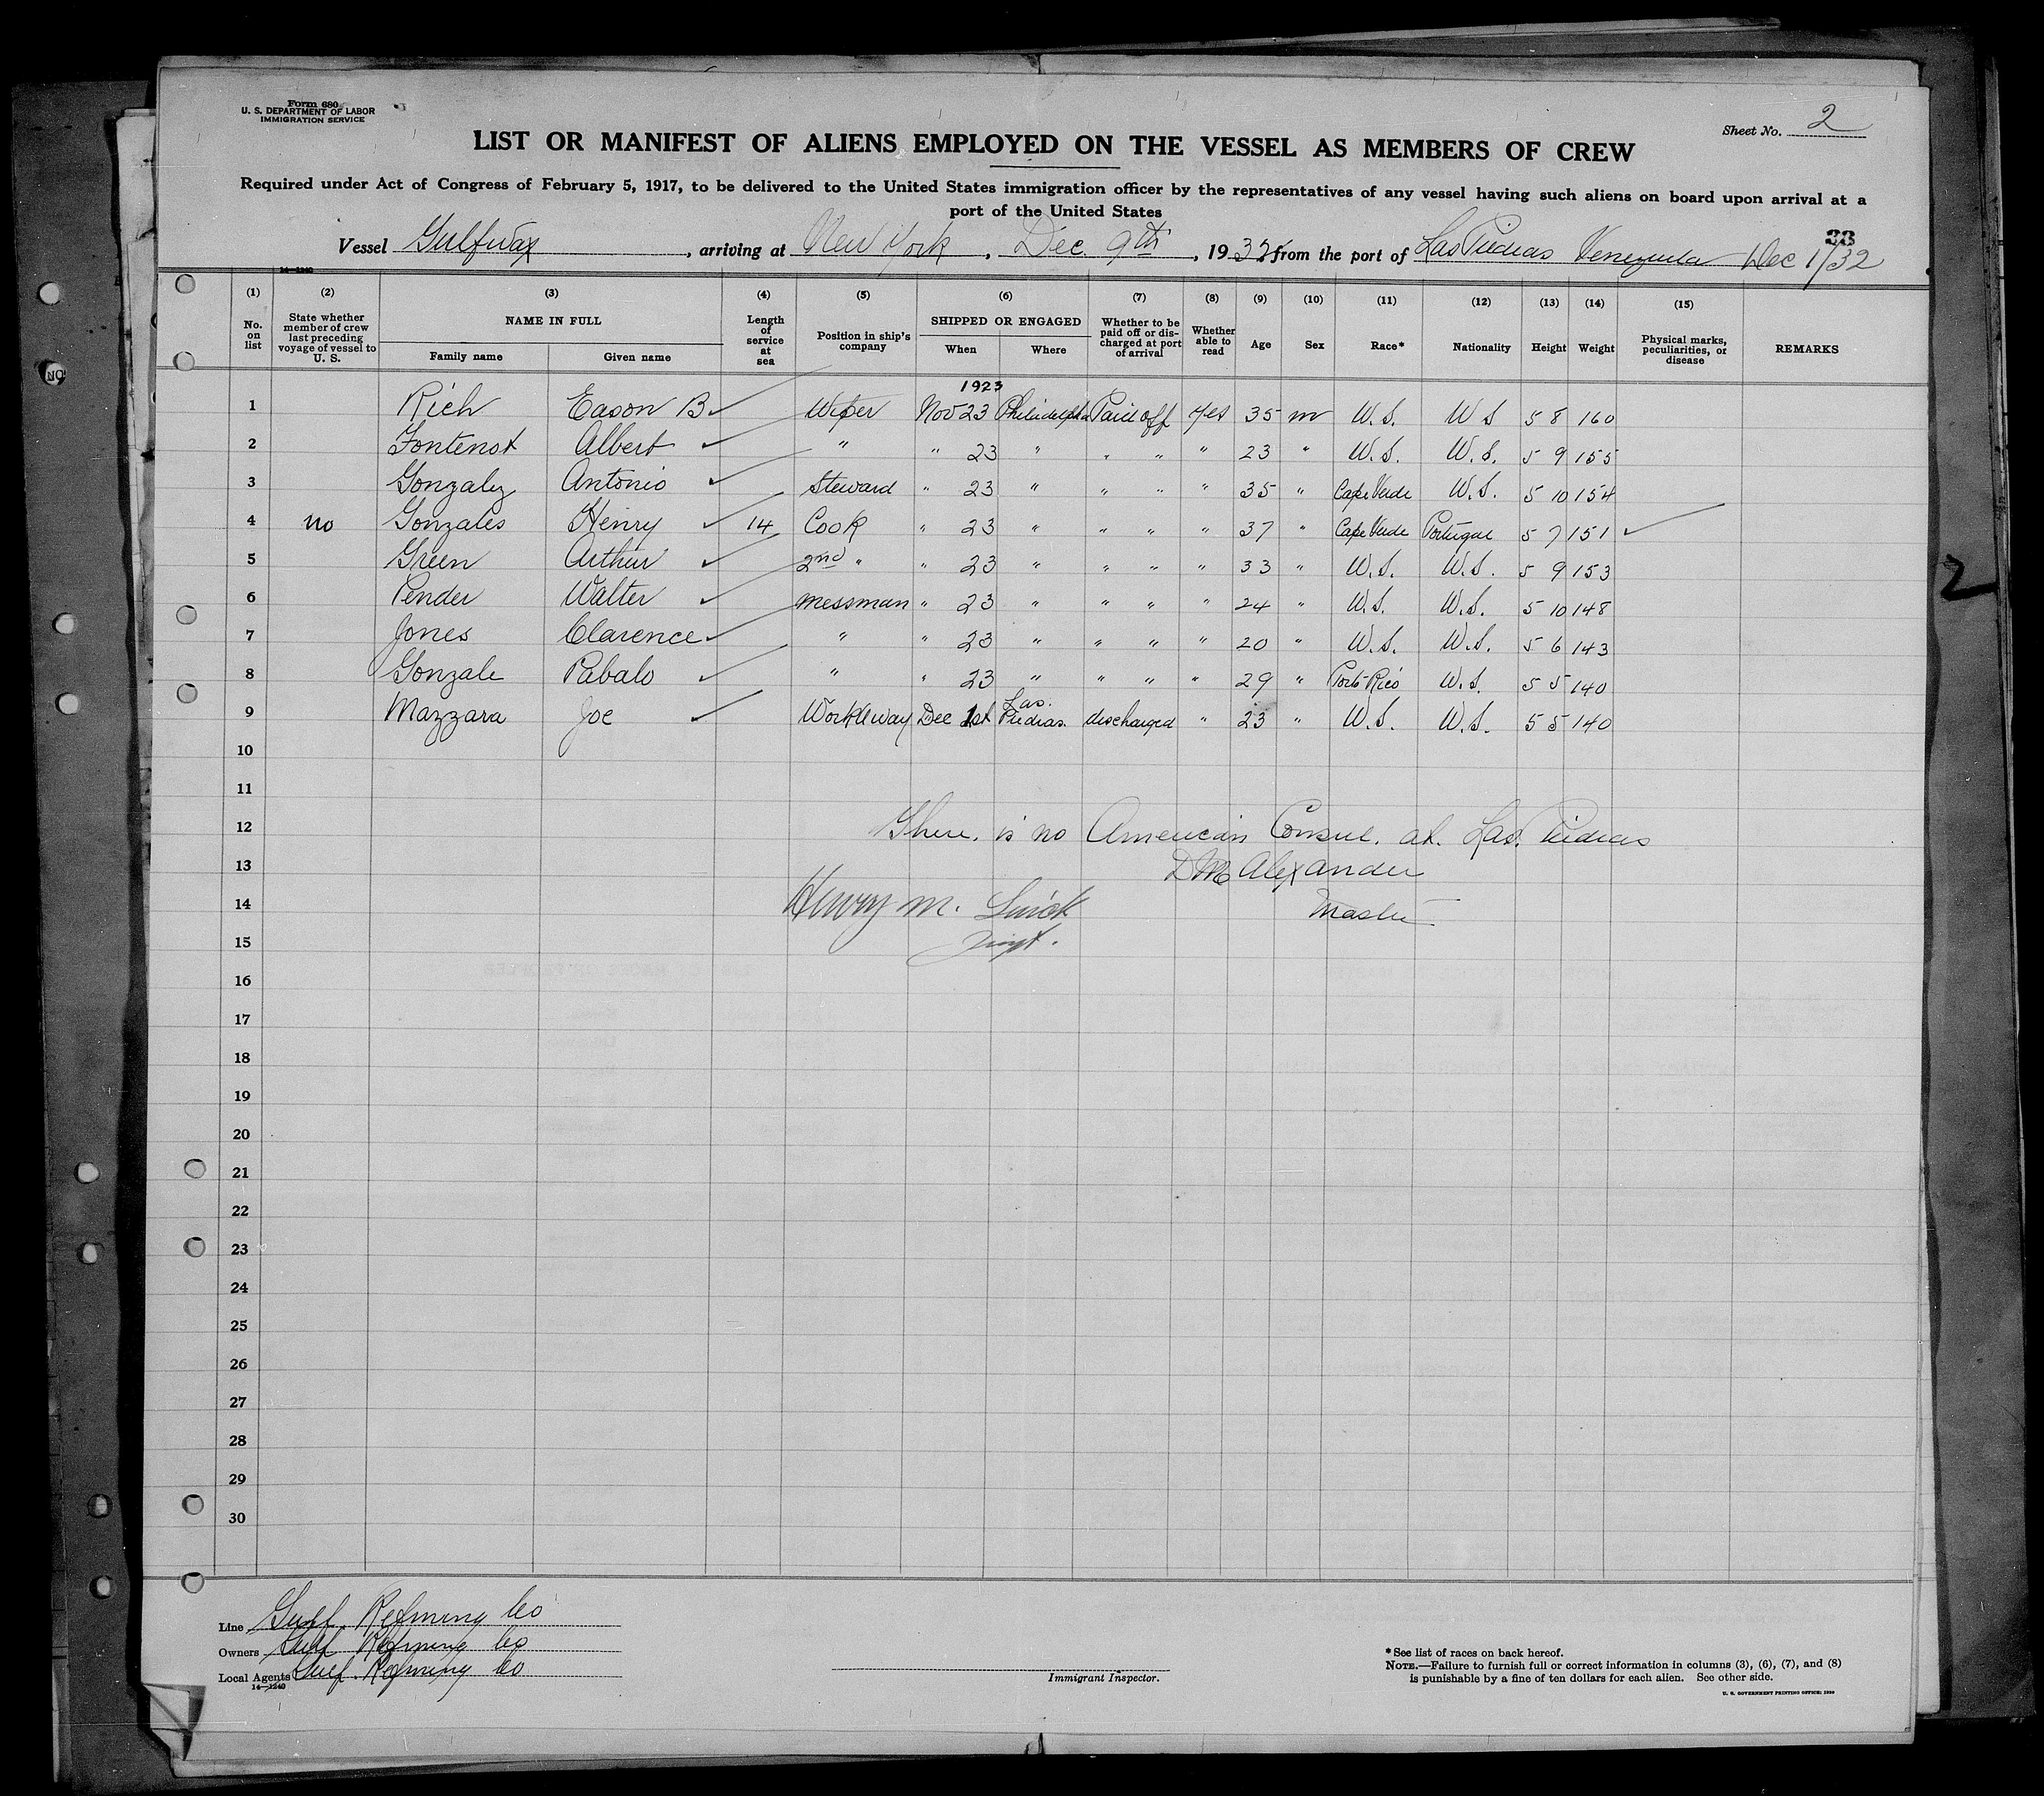 Form 680
U. S. DEPARTMENT OF LABOR
IMMIGRATION SERVICE
Sheet No. 2
LIST OR MANIFEST OF ALIENS EMPLOYED ON THE VESSEL AS MEMBERS OF CREW
Required under Act of Congress of February 5, 1917, to be delivered to the United States immigration officer by the representatives of any vessel having such aliens on board upon arrival at a
port of the United States
38
Vessel Gulfwax, arriving at New York, Dec. 9th, 1932 from the port of Las Piedras Venezuela Dec 1/32
14—1240
(1) (2) (3) (4) (5) (6) (7) (8) (9) (10) (11) (12) (13) (14) (15)
No. on list State whether member of crew last preceding voyage of vessel to U. S. NAME IN FULL Family name Given name Length of service at sea Position in ship's company SHIPPED OR ENGAGED When Where Whether to be paid off or discharged at port of arrival Whether able to read Age Sex Race* Nationality Height Weight Physical marks, peculiarities, or disease REMARKS
1923
1 Rich Eason B ✓ Wiper Nov 23 Philadelphia Paid off Yes 35 m U.S. U S 5 8 160
2 Fontenot Albert ✓ " " 23 " " " " 23 " U.S. U.S. 5 9 155
3 Gonzalez Antonio ✓ Steward " 23 " " " " 35 " Cape Verde U.S. 5 10 154
4 No Gonzales Henry ✓ 14 Cook " 23 " " " " 37 " Cape Verde Portugal 5 7 151 ✓
5 Green Arthur ✓ 2nd " " 23 " " " " 33 " U.S. U.S. 5 9 153
6 Pender Walter ✓ messman " 23 " " " " 24 " U.S. U.S. 5 10 148
7 Jones Clarence ✓ " " 23 " " " " 20 " U.S. U.S. 5 6 143
8 Gonzale Pabalo ✓ " " 23 " " " " 29 " Porto Rico U.S. 5 5 140
9 Mazzara Joe ✓ Workaway Dec 1st Las Piedras. discharged " 23 " U.S. U.S. 5 5 140
10
11
12 There is no American Consul. at. Las. Piedras
13 D M Alexander
14 Henry M. Master
15
16
17
18
19
20
21
22
23
24
25
26
27
28
29
30
2
Line Gulf Refining Co
Owners Gulf Refining Co
Local Agents Gulf Refining Co
14—1240
Immigrant Inspector.
* See list of races on back hereof.
NOTE.—Failure to furnish full or correct information in columns (3), (6), (7), and (8)
is punishable by a fine of ten dollars for each alien. See other side.